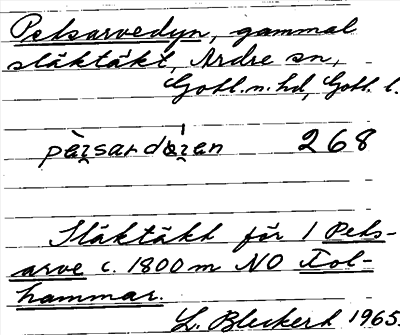 Petsarvedyn, gammal
slåktäkt, Ardre sn,
Gotl. n. hd, Gotl. l.
268
Slåktäkt för 1 Pets-
arve c. 1800 m NO Tol-
hammar.
L. Bleckert 1965